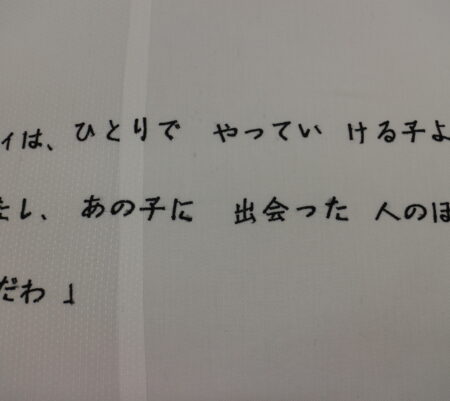 ィは、ひとりで やってい ける子よ
し、 あの子に 出会った 人のほ
だわ 」